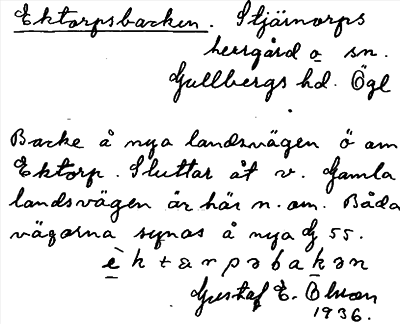 Ektorpsbacken. Stjärnorps
herrgård o sn.
Gullbergs hd. Ögl
Backe å nya landsvägen ö om
Ektorp. Sluttar åt v. Gamla
landsvägen är här n. om. Båda
vägarna synas å nya G 55.
è k t a r p ə b a k ə n
Gustaf E. Olsson
1936.